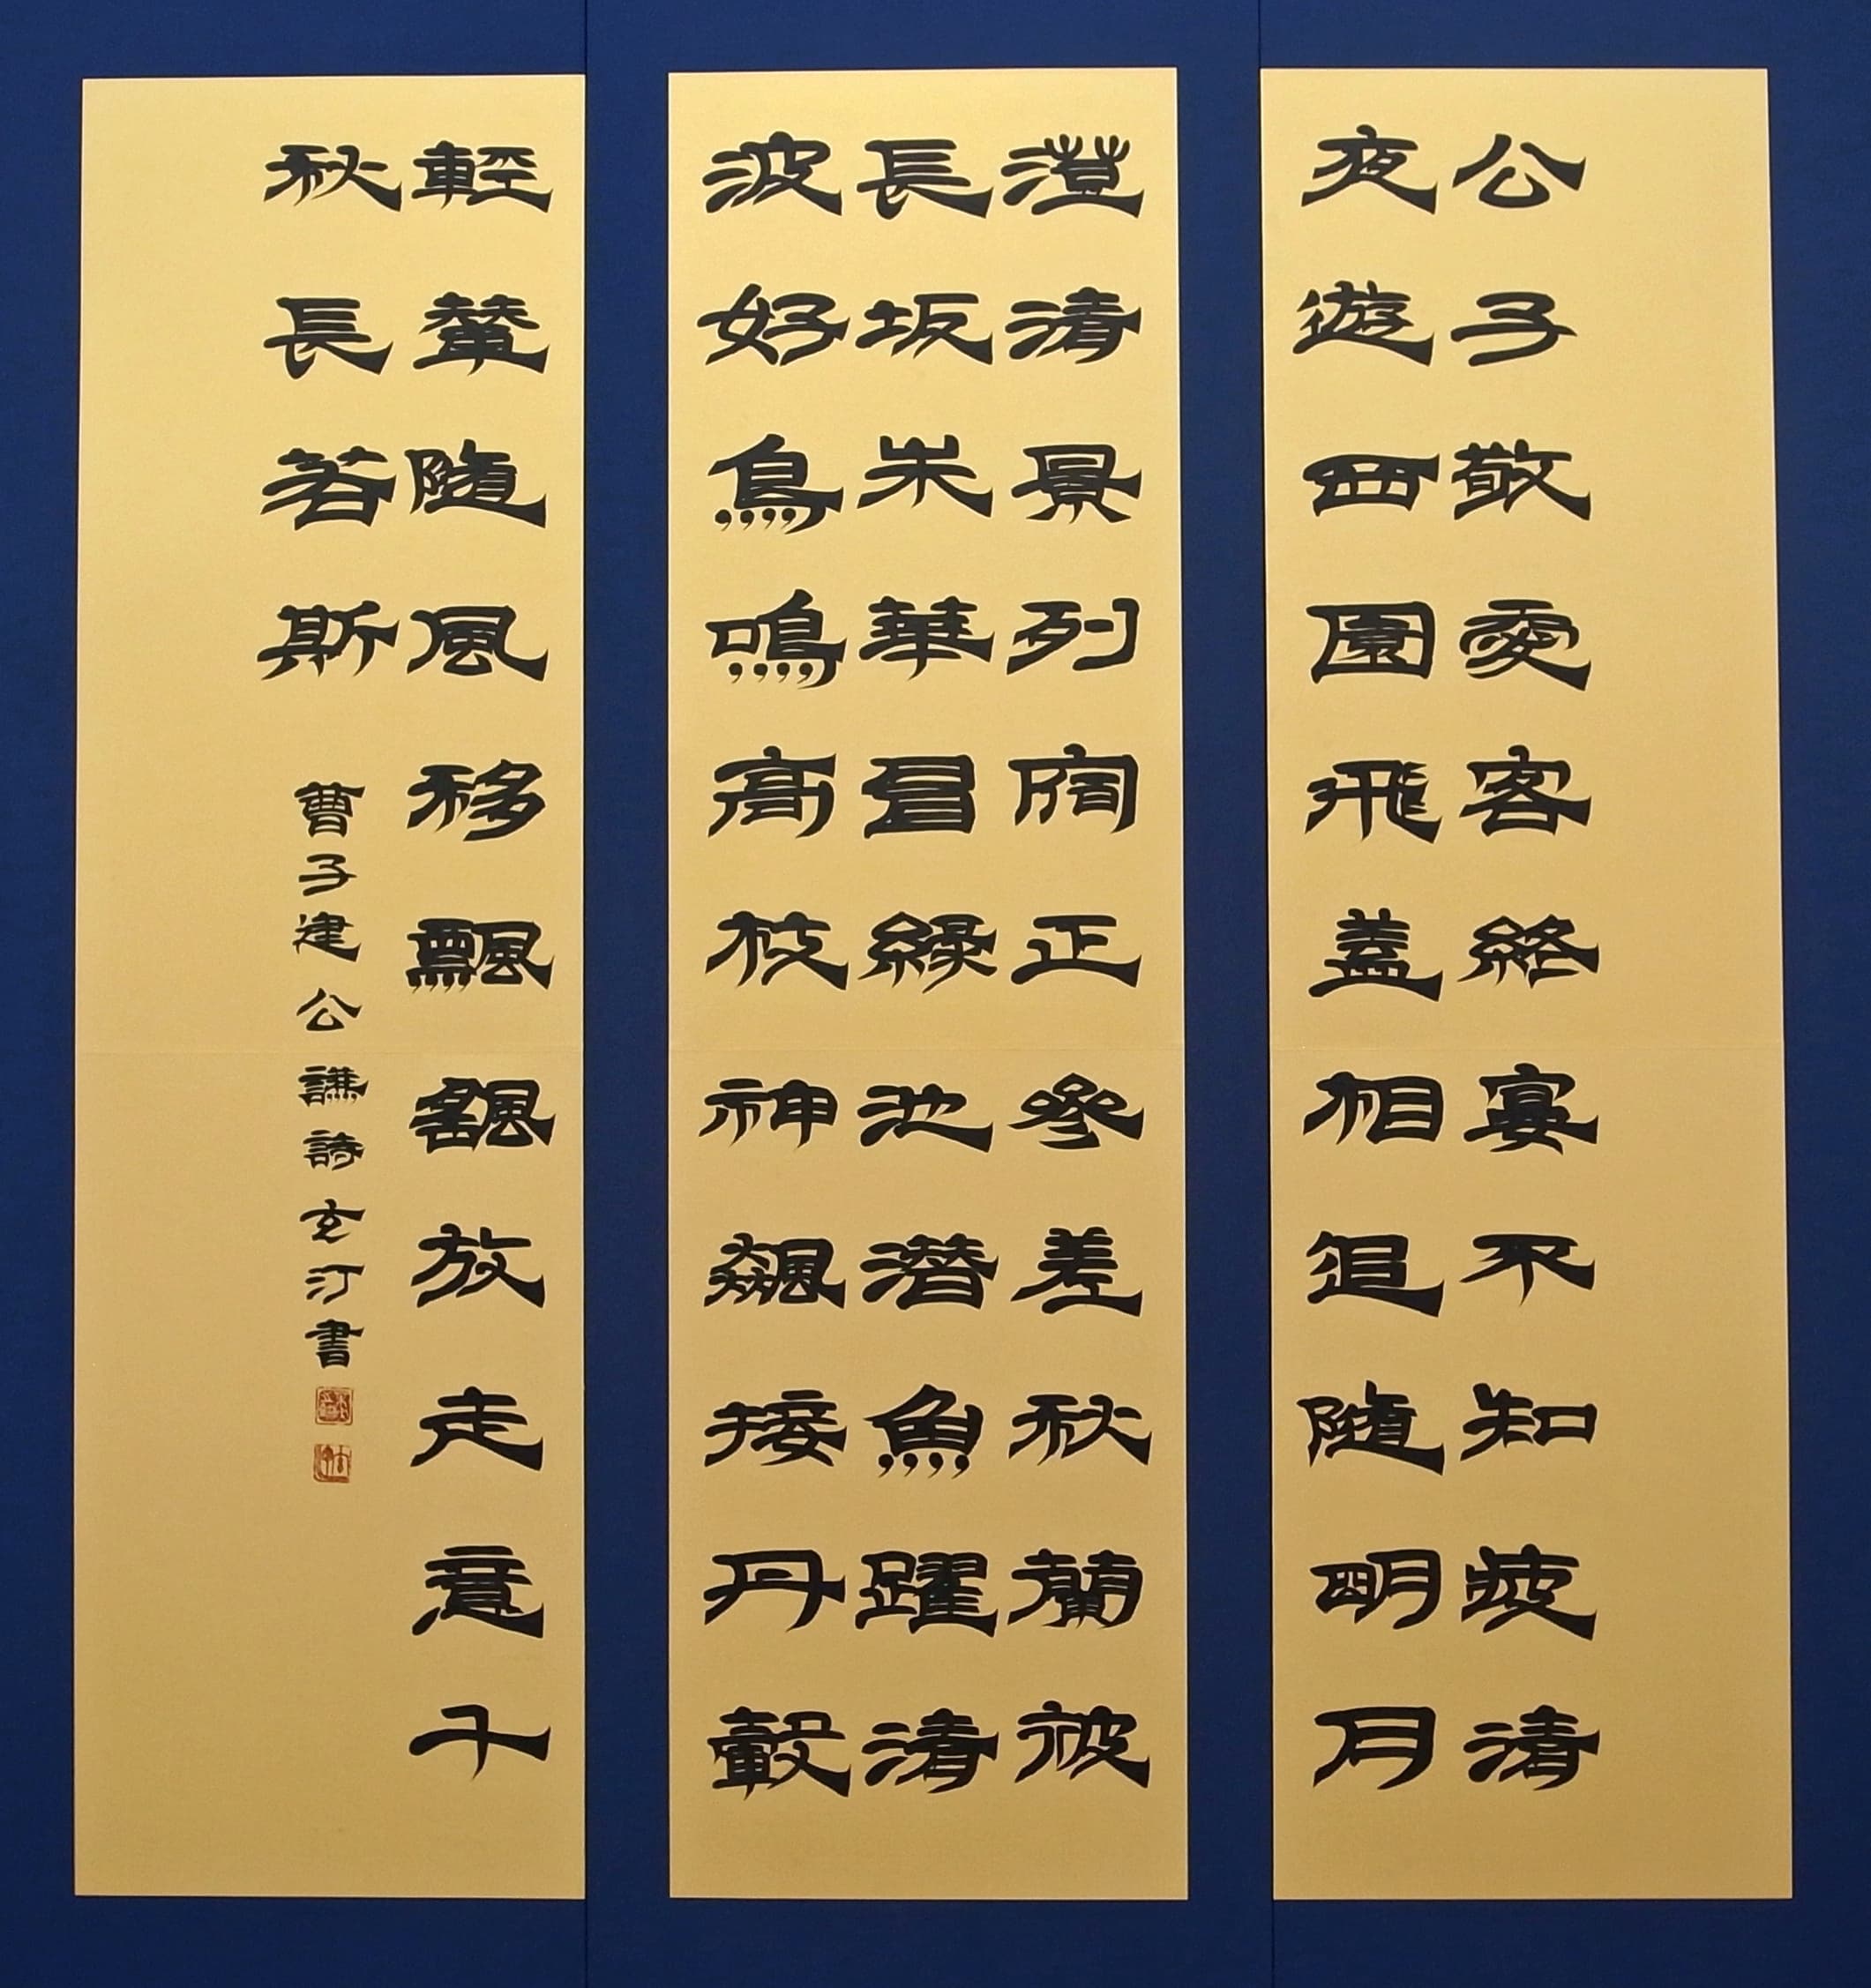 公子敬愛客終宴不知疲清
夜遊西園飛蓋相追隨明月
澄清景列宿正參差秋蘭被
長坂朱華冒緑池潛魚躍清
波好鳥鳴高枝神飆接丹轂
輕輦隨風移飄颻放志意千
秋長若斯
曹子建公讌詩玄汀書